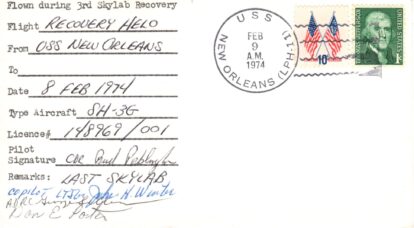 Flown during 3rd Skylab Recovery
Flight RECOVERY HELO
From USS NEW ORLEANS
To
Date 8 FEB 1974
Type Aircraft SH-3G
Licence# 148969/001
Pilot
Signature CDR
Remarks: LAST SKYLAB
copilot LTJG John H. Winter
Don E.
USS
NEW ORLEANS (LPH-11)
FEB
9
A.M.
1974
10c